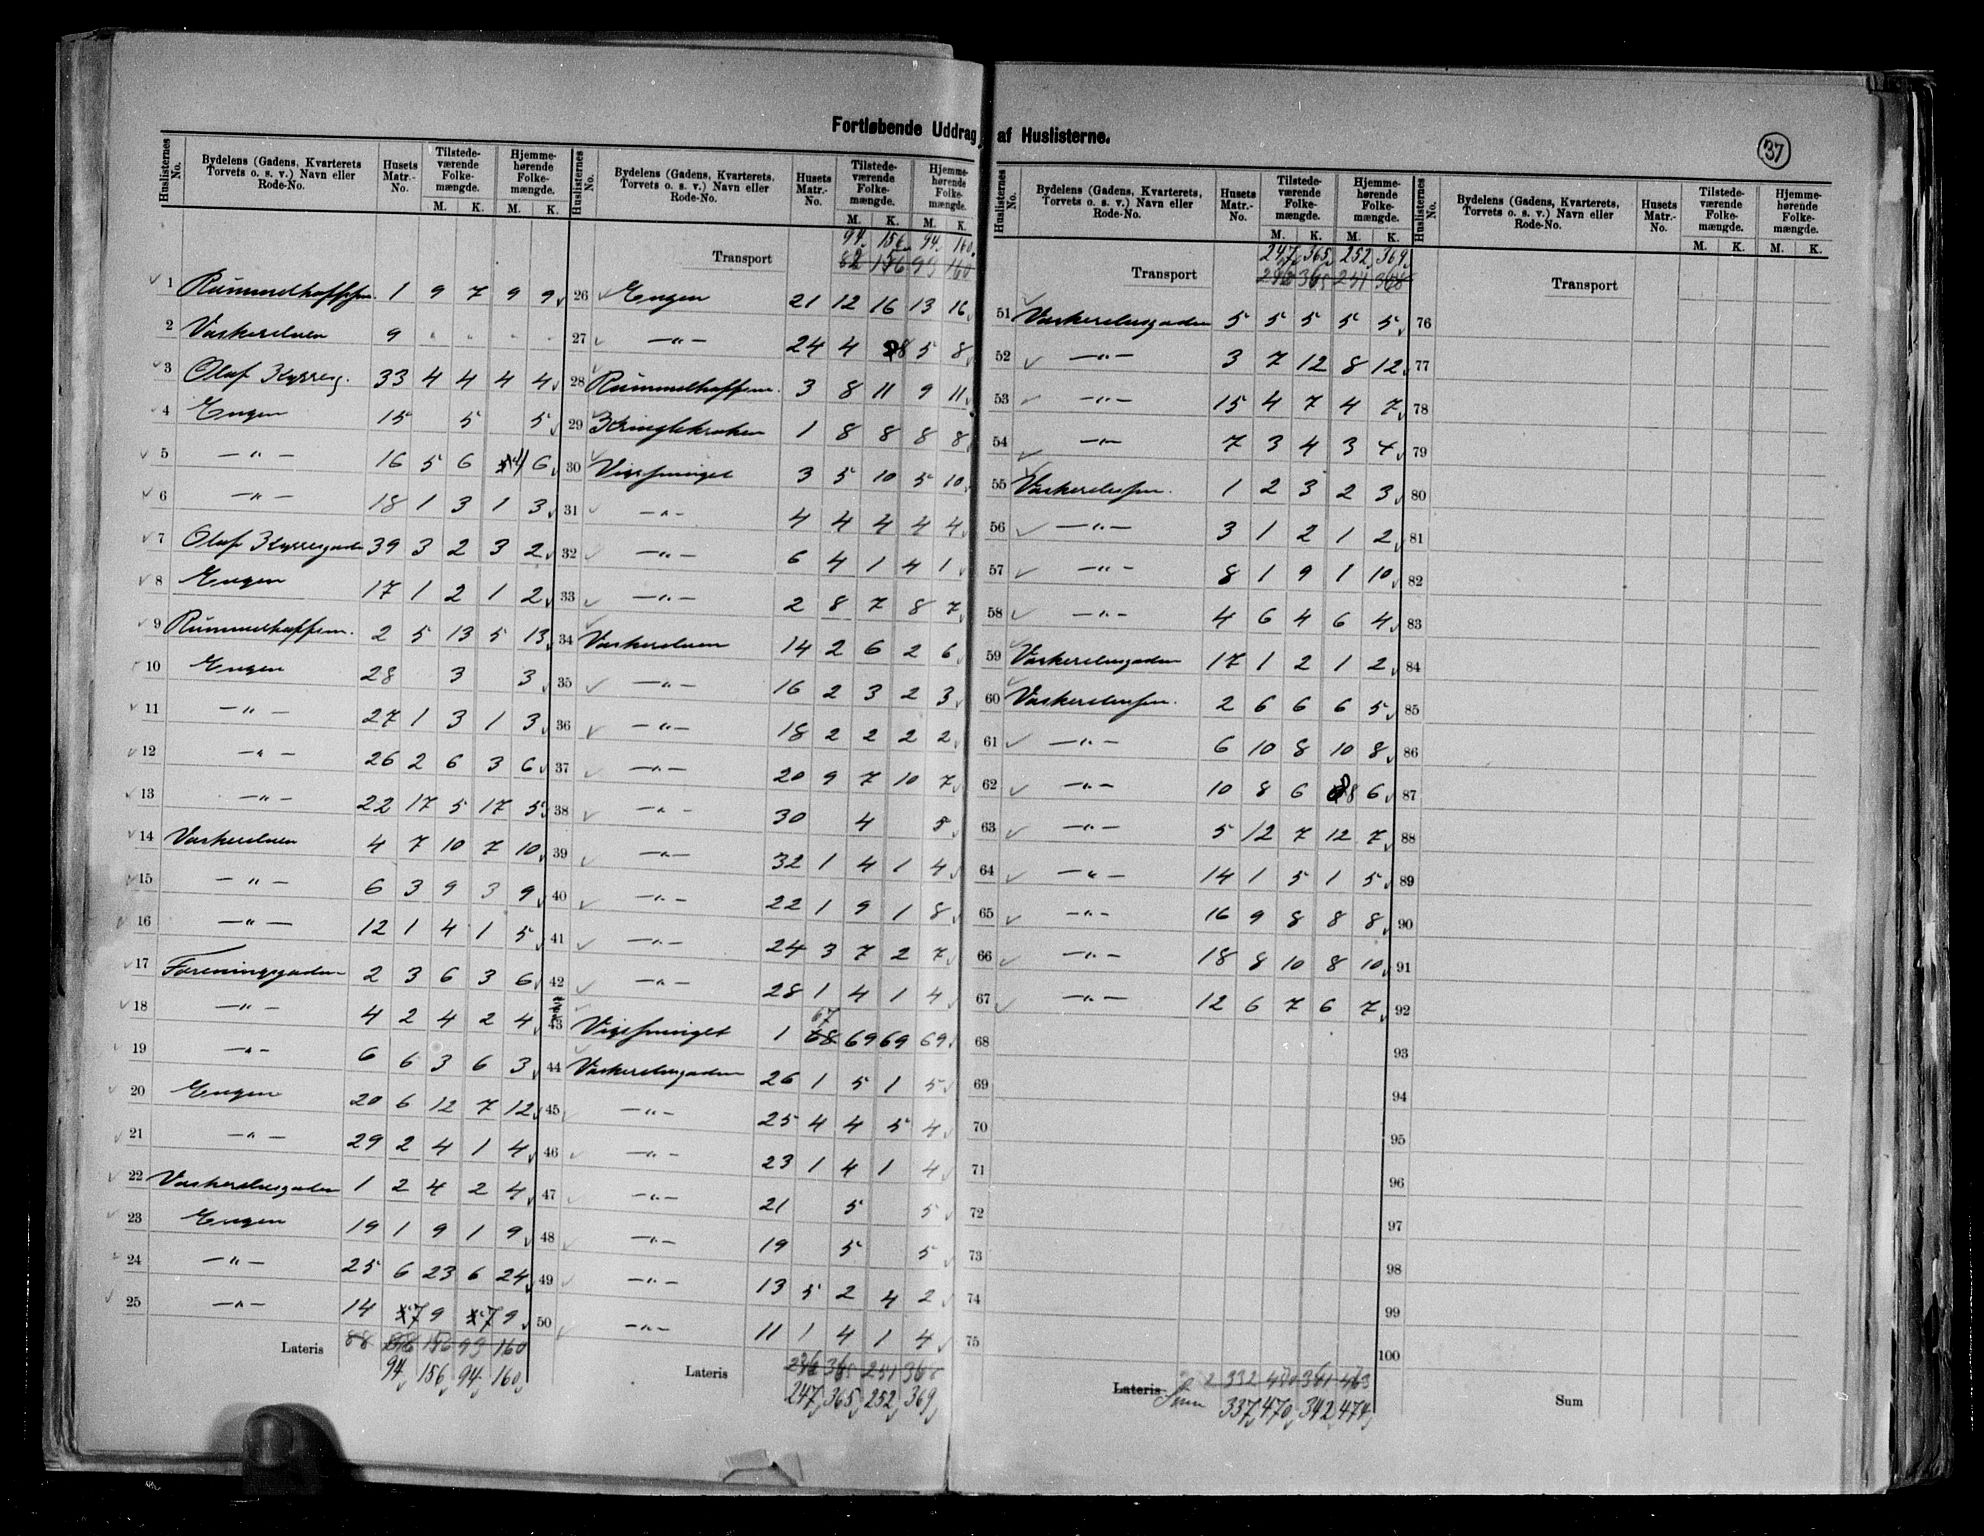 Fortløbende Uddrag af Huslisterne.
37
Huslisternes No. Bydelens (Gadens, Kvarterets Torvets o. s. v.) Navn eller Rode-No. Husets Matr.-No. Tilstedeværende Folkemængde. M. K. Hjemmehørende Folkemængde. M. K.
1 Rummelhoffsm. 1 9 7 9 9
2 Vaskerelven 9 " " " "
3 Olaf Kyrresg. 33 4 4 4 4
4 Engen 15 5 5
5 —"— 16 5 6 4 6
6 —"— 18 1 3 1 3
7 Olaf Kyrresgade 39 3 2 3 2
8 Engen 17 1 2 1 2
9 Rummelhoffsm. 2 5 13 5 13
10 Engen 28 3 3
11 —"— 27 1 3 1 3
12 —"— 26 2 6 3 6
13 —"— 22 17 5 17 5
14 Vaskerelven 4 7 10 7 10
15 —"— 6 3 9 3 9
16 —"— 12 1 4 1 5
17 Foreningsgaden 2 3 6 3 6
18 —"— 4 2 4 2 4
19 —"— 6 6 3 6 3
20 Engen 20 6 12 7 12
21 —"— 29 2 4 1 4
22 Vaskerelvsgaden 1 2 4 2 4
23 Engen 19 1 9 1 9
24 —"— 25 6 23 6 24
25 —"— 14 7 9 7 9
Lateris 88 156 93 160
94 156 94 160
Huslisternes No. Bydelens (Gadens, Kvarterets, Torvets o. s. v.) Navn eller Rode-No. Husets Matr.-No. Tilstedeværende Folkemængde. M. K. Hjemmehørende Folkemængde. M. K.
94 156 94 160
Transport 82 156 93 160
26 Engen 21 12 16 13 16
27 —"— 24 4 8 5 8
28 Rummelhoffsm. 3 8 11 9 11
29 Kringlekroken 1 8 8 8 8
30 3 5 10 5 10
31 —"— 4 4 4 4 4
32 —"— 6 4 1 4 1
33 —"— 2 8 7 8 7
34 Vaskerelven 14 2 6 2 6
35 —"— 16 2 3 2 3
36 —"— 18 2 2 2 2
37 —"— 20 9 7 10 7
38 —"— 30 4 5
39 —"— 32 1 4 1 4
40 —"— 22 1 9 1 8
41 —"— 24 3 7 2 7
42 —"— 28 1 4 1 4
43 1 68 67 69 69 69
44 Vaskerelvsgaden 26 1 5 1 5
45 —"— 25 4 4 5 4
46 —"— 23 1 4 1 4
47 —"— 21 5 5
48 —"— 19 5 5
49 —"— 13 5 2 4 2
50 —"— 11 1 4 1 4
Lateris 246 365 251 368
247 365 252 369
Huslisternes No. Bydelens (Gadens, Kvarterets, Torvets o. s. v.) Navn eller Rode-No. Husets Matr.-No. Tilstedeværende Folkemængde. M. K. Hjemmehørende Folkemængde. M. K.
247 365 252 369
Transport 246 365 251 368
51 Vaskerelvsgaden 5 5 5 5 5
52 —"— 3 7 12 8 12
53 —"— 15 4 7 4 7
54 —"— 7 3 4 3 4
55 Vaskerelvsm. 1 2 3 2 3
56 —"— 3 1 2 1 2
57 —"— 8 1 9 1 10
58 —"— 4 6 4 6 4
59 Vaskerelvsgaden 17 1 2 1 2
60 Vaskerelvsm. 2 6 6 6 5
61 —"— 6 10 8 10 8
62 —"— 10 8 6 8 6
63 —"— 5 12 7 12 7
64 —"— 14 1 5 1 5
65 —"— 16 9 8 8 8
66 —"— 18 8 10 8 10
67 —"— 12 6 7 6 7
68
69
70
71
72
73
74
75
Lateris 332 470 341 463
Sum 337 470 342 474
Huslisternes No. Bydelens (Gadens, Kvarterets, Torvets o. s. v.) Navn eller Rode-No. Husets Matr.-No. Tilstedeværende Folkemængde. M. K. Hjemmehørende Folkemængde. M. K.
Transport
76
77
78
79
80
81
82
83
84
85
86
87
88
89
90
91
92
93
94
95
96
97
98
99
100
Sum